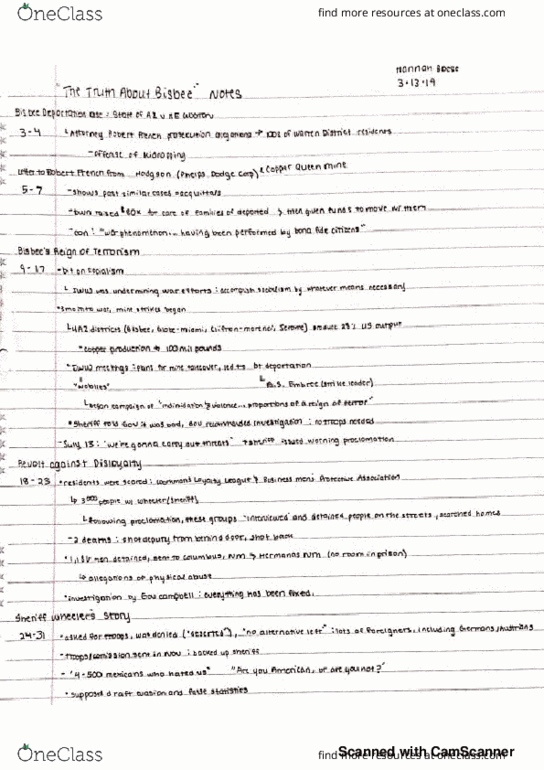 OneClass
find more resources at oneclass.com
3.13.19
"The Truth About Bisbee" Notes
Bisbee Deportation Case: State of AZ v HE Wootton
3-4 Attorney Robert French prosecution 1000s of Warren District residents
-offense of kidnapping
Letter to Robert French from Hodgson (Phelps Dodge Corp) & Copper Queen Mine
5-7 -shows past similar cases acquittals
-town raised $80K for care of families of deported → then given funds to move w/ them
"war phenomenon... having been performed by bona fide citizens"
Bisbee's Reign of Terrorism
9-17 on socialism
IWW was undermining war efforts: accomplish socialism by whatever means necessary
mine strikes began
4 AZ districts (Bisbee, Globe-Miami, Clifton-Morenci, Jerome) produce 28% US output
copper production → 100 mil pounds
IWW meetings: plans for mine takeover, led to deportation
"wobblies" A.S. Embree (strike leader)
began campaign of "intimidation & violence... proportions of a reign of terror"
Sheriff told Gov it was bad, Gov recommended investigation: no troops needed
-July 13: "we're gonna carry out threats" issued warning proclamation
Revolt against Disloyalty
18-23 residents were scared: Workmans Loyalty League & Business mens Protective Association
people w/ Wheeler (sheriff)
following proclamation, these groups "interviewed" and detained people on the streets, searched homes
-2 deaths: shot deputy from behind door, shot back
men detained, sent to Columbus, NM → Hermanas NM (no room in prison)
allegations of physical abuse
investigation by Gov Campbell: everything has been fixed.
Sheriff Wheeler's Story
24-31 asked for troops, was denied ("deserted"), "no alternative left": lots of foreigners, including Germans/Austrians
troops/comission sent in Nov: backed up sheriff
- "4-500 mexicans who hated us" "Are you American, or are you not?"
supposed draft evasion and false statistics
Scanned with CamScanner
OneClass
find more resources at oneclass.com